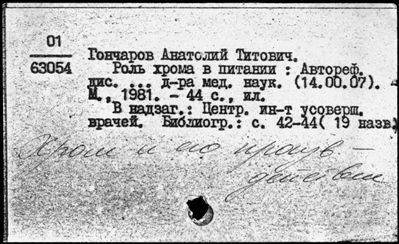 01
63054
Гончаров Анатолий Титович.
Роль хрома в питании : Автореф.
дис. ... д-ра мед. наук. (14.00.07). -
М., 1981. - 44 с., ил.
В надзаг.: Центр. ин-т усоверш.
врачей. Библиогр.: с. 42-44( 19 назв
Хром и его произв -